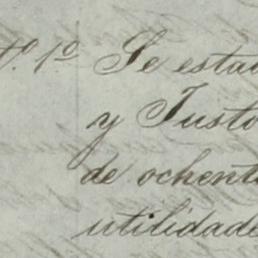 to. 1o Se esta
y Justo
de ochent
utilidade